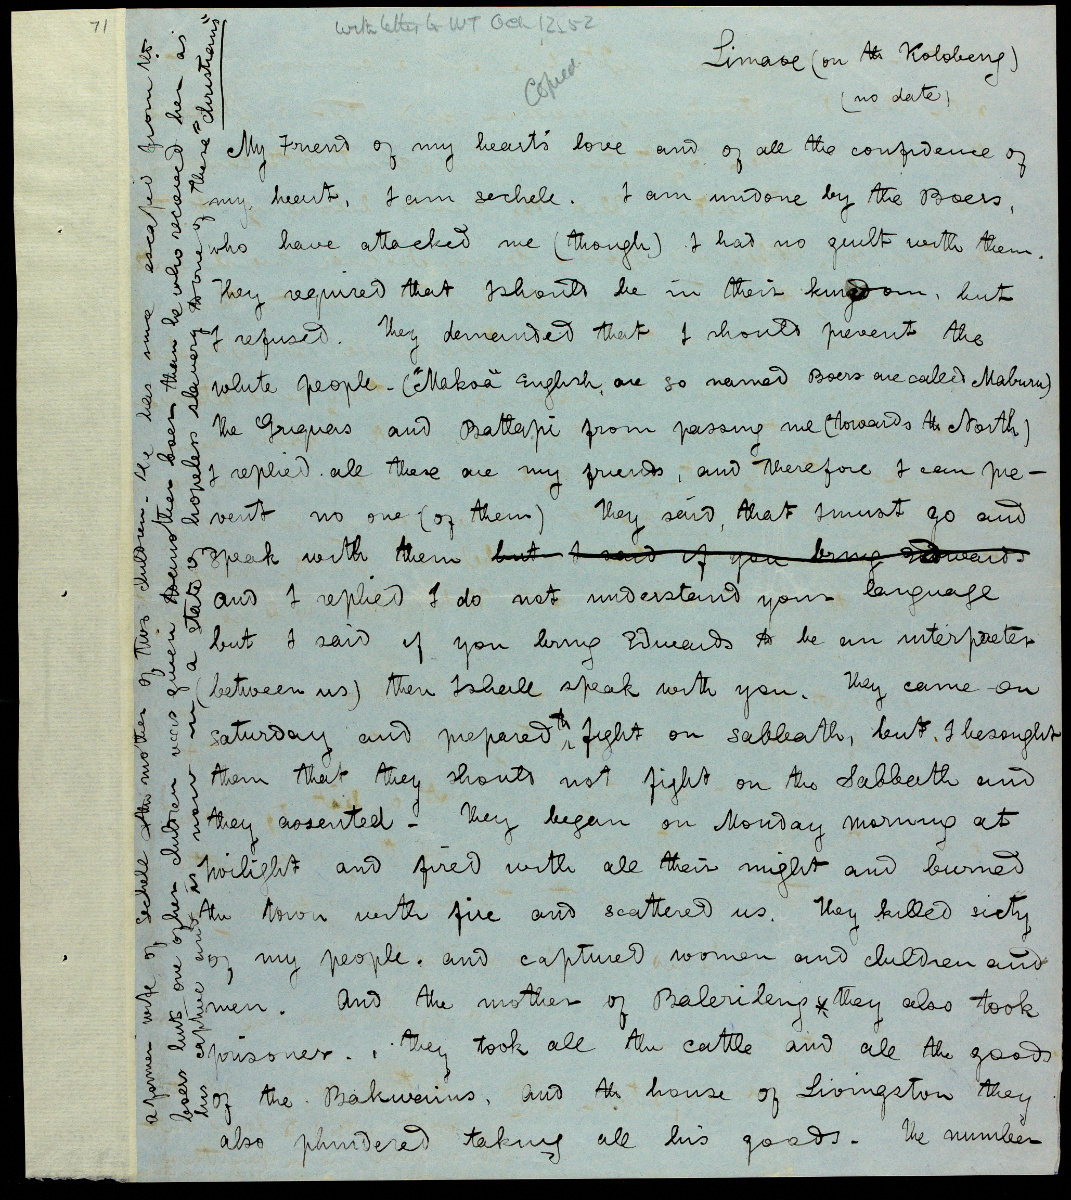 71
with letter to WT Oct 12 52
Copied
Limaoe (on the Kolobeng)
(no date)
My Friend of my heart's love and of all the confidence of
my heart, I am Sechele. I am undone by the Boers,
who have attacked me (though) I had no guilt with them.
They required that I should be in their kingdom, but
I refused. They demanded that I should prevent the
white people - ("Makoa" English, are so named Boers are called Maburu)
the Griquas and Batlapi from passing me (towards the North)
I replied. all these are my friends, and therefore I can pre-
vent no one (of them) They said, that I must go and
speak with them but I said if you bring Edwards
and I replied I do not understand your language
but I said if you bring Edwards to be an interpreter
(between us) then I shall speak with you. They came on
saturday and prepared to fight on sabbath, but I besought
them that they should not fight on the Sabbath and
they assented - They began on Monday morning at
twilight and fired with all their might and burned
the town with fire and scattered us. They killed sixty
of my people. and captured women and children and
men. And the mother of Balerileng * they also took
prisoner. they took all the cattle and all the goods
of the Bakwains, and the house of Livingston they
also plundered taking all his goods - The number
a former wife of Sechele & the mother of two children - She has since escaped from the
boers but one of her children was given to another boer than he who received her as
his captive and is now in a state of hopeless slavery to one of these "Christians"